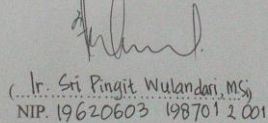 (Ir. Sri Pingit Wulandari, MSi)
NIP. 19620603 198701 2 001